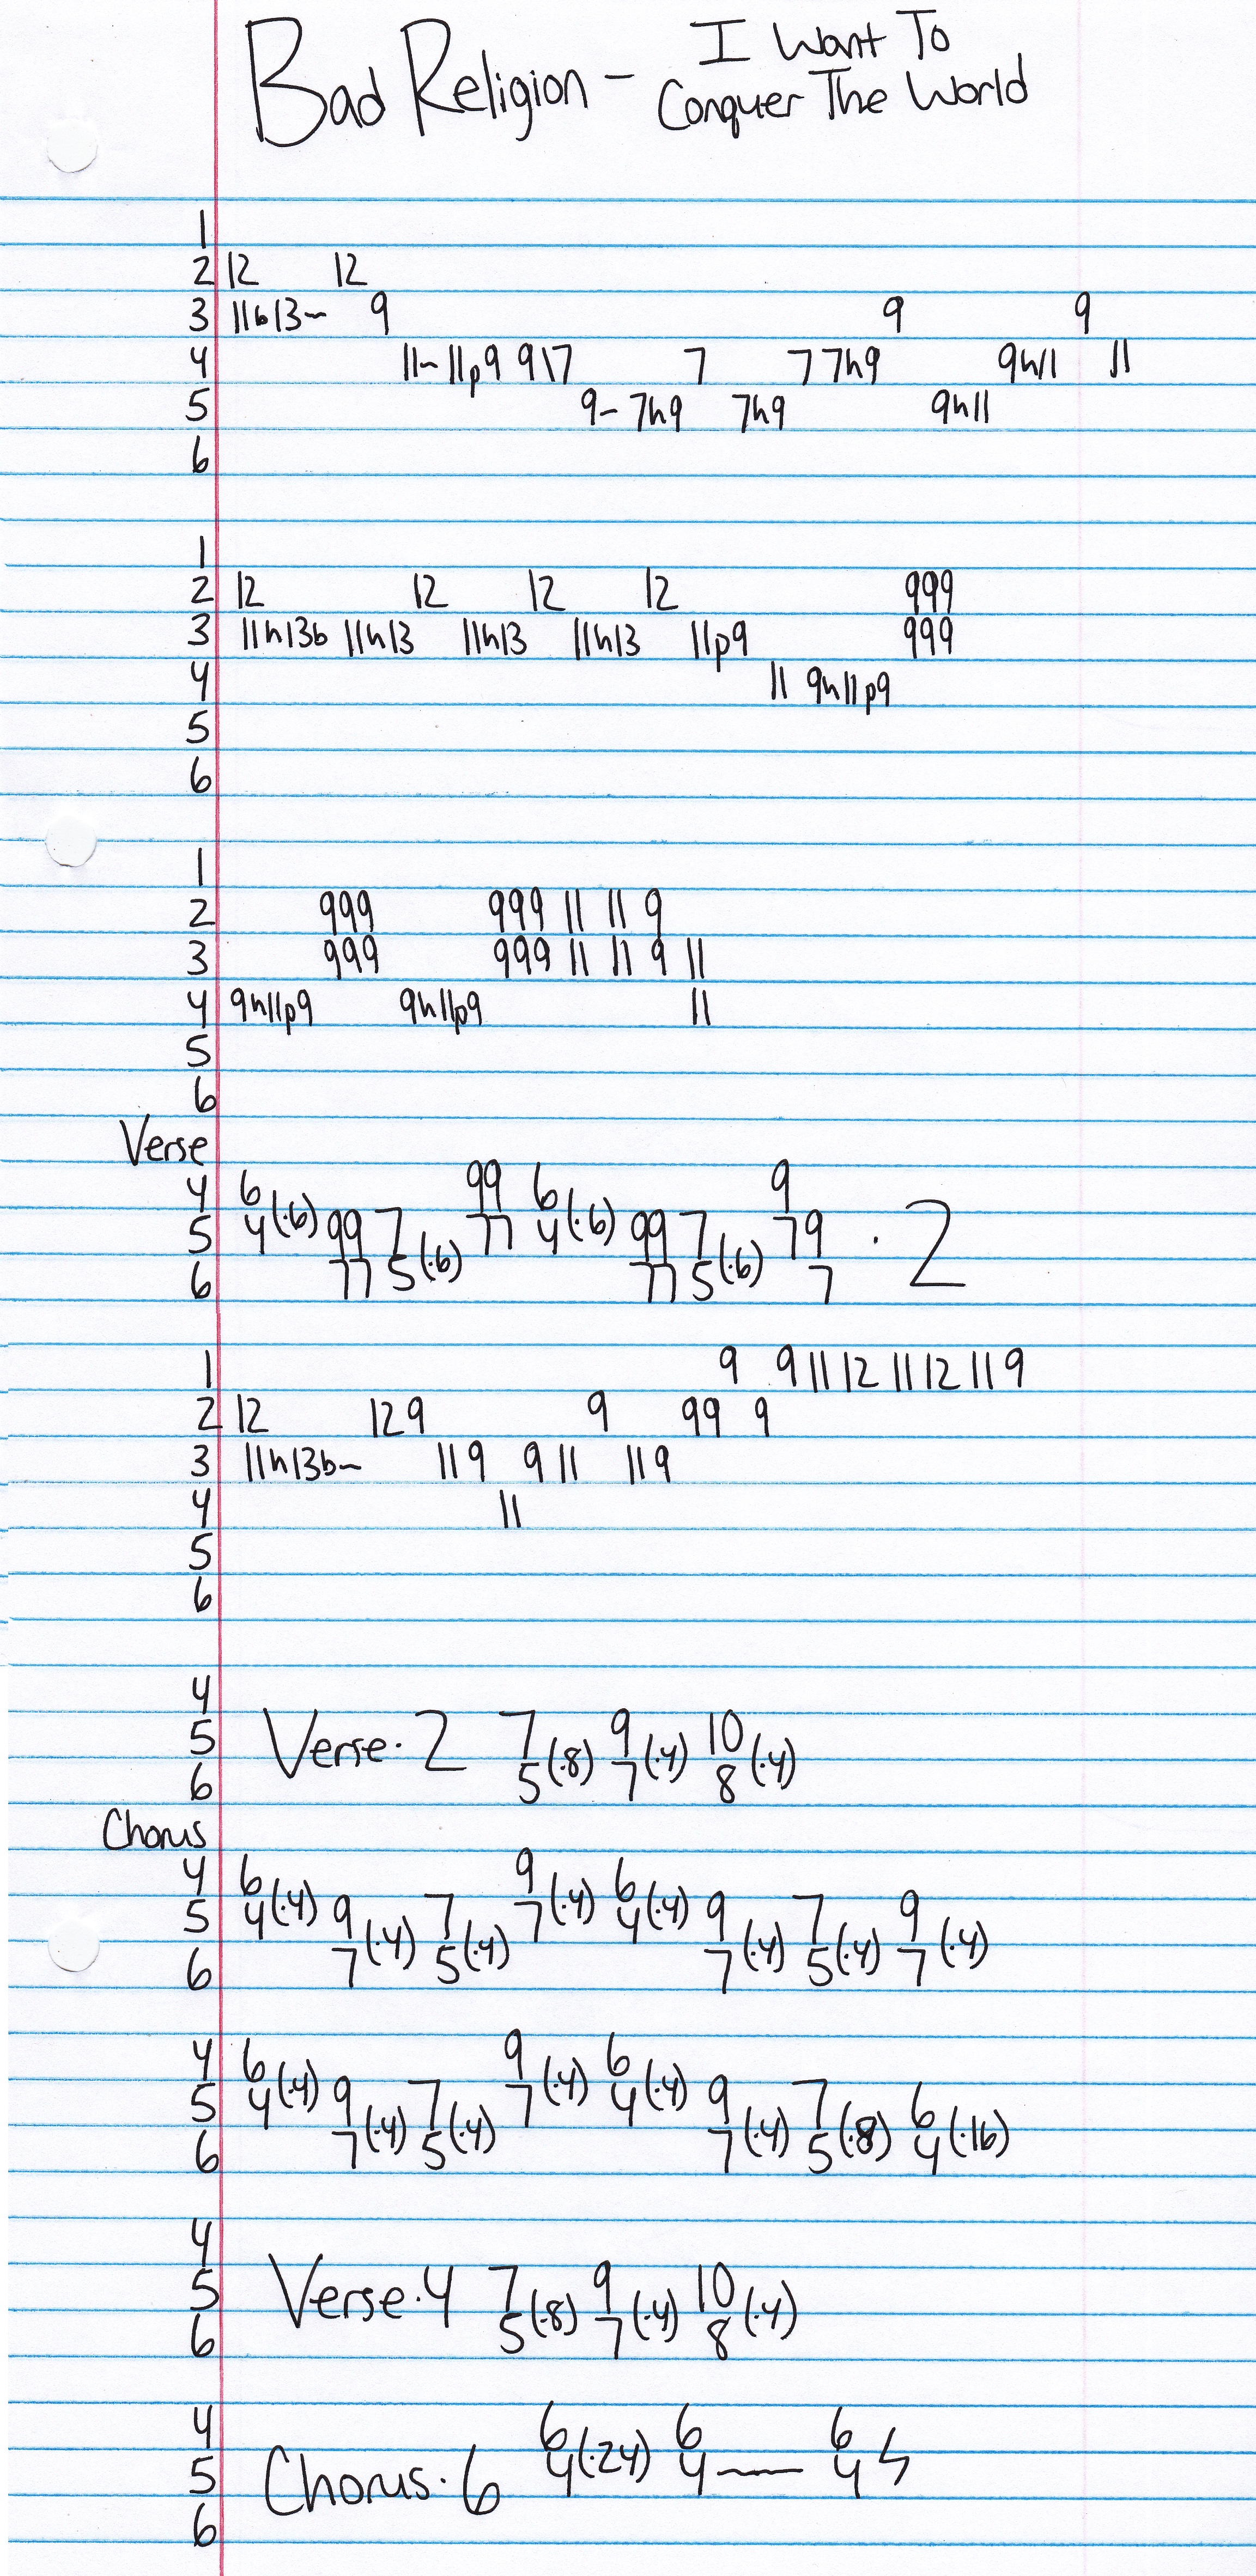 Bad Religion - I Want To
Conquer The World
1
2 12 12
3 11b13~ 9 9 9
4 11~ 11p9 9\7 7 7 7h9 9h11 11
5 9~ 7h9 7h9 9h11
6
1
2 12 12 12 12 999
3 11h13b 11h13 11h13 11h13 11p9 999
4 11 9h11p9
5
6
1
2 999 999 11 11 9
3 999 999 11 11 9 11
4 9h11p9 9h11p9 11
5
6
Verse
4 6 99 6 9
5 4(·6) 99 7 77 4(·6) 99 7 79 · 2
6 77 5(·6) 77 5(·6) 7
1 9 9 11 12 11 12 11 9
2 12 12 9 9 99 9
3 11h13b~ 11 9 9 11 11 9
4 11
5
6
4
5 Verse·2 7 9 10
6 5(·8) 7(·4) 8(·4)
Chorus
4 6 9 6
5 4(·4) 9 7 7(·4) 4(·4) 9 7 9
6 7(·4) 5(·4) 7(·4) 5(·4) 7(·4)
4 6 9 6
5 4(·4) 9 7 7(·4) 4(·4) 9 7 6
6 7(·4) 5(·4) 7(·4) 5(·8) 4(·16)
4
5 Verse·4 7 9 10
6 5(·8) 7(·4) 8(·4)
4 6 6 6
5 Chorus·6 4(·24) 4~ 4
6